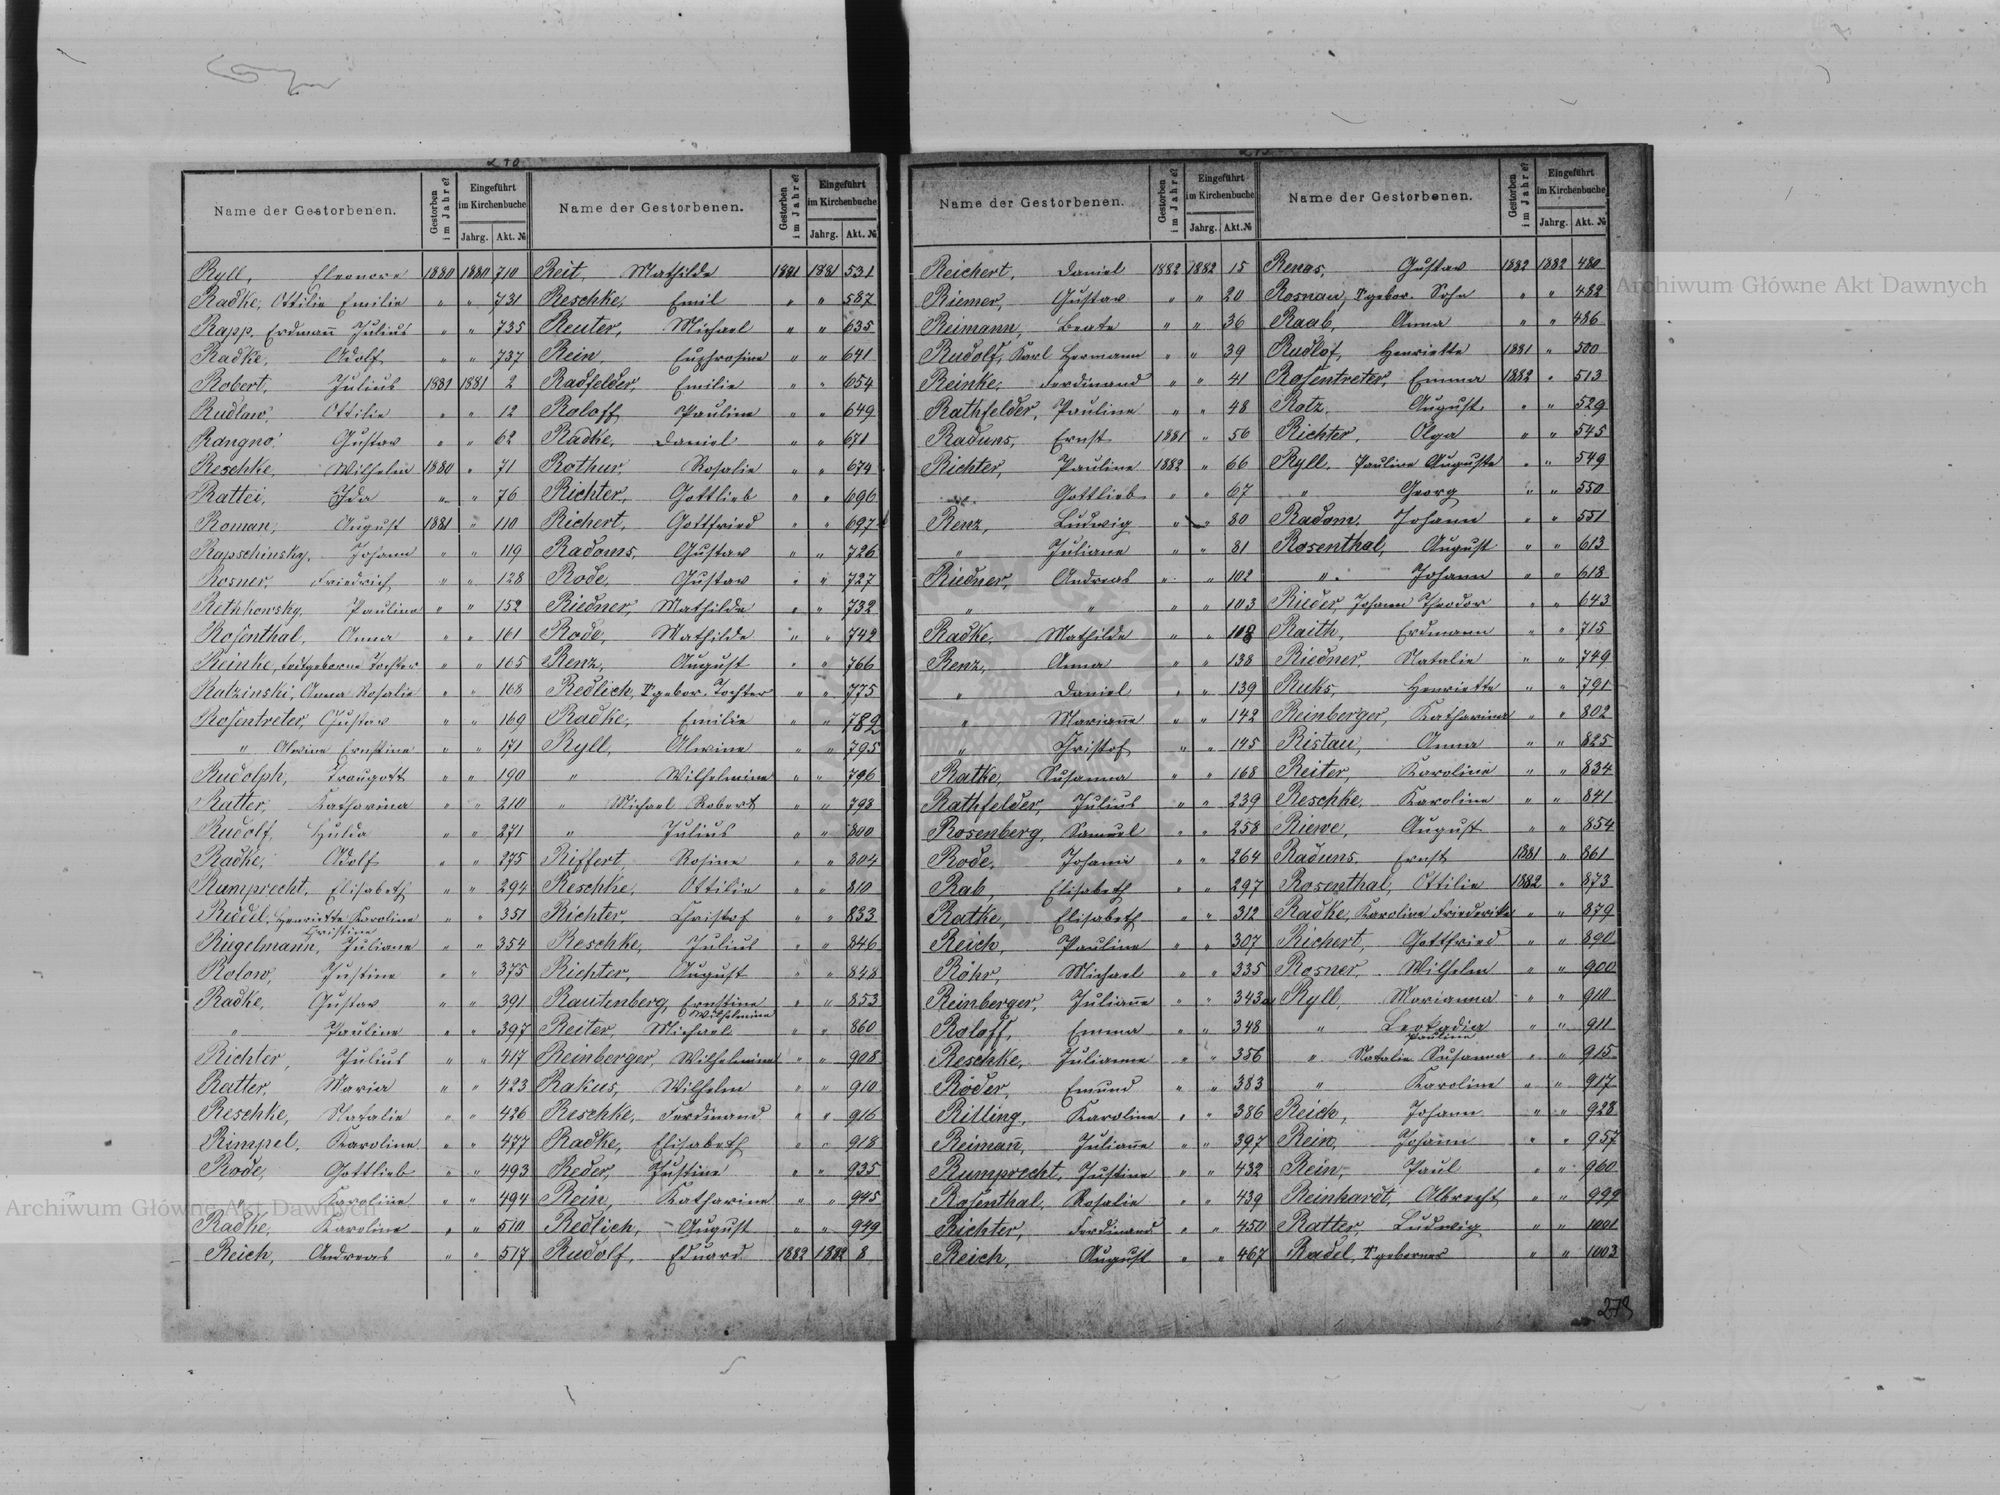 Name der Gestorbenen. Gestorben im Jahre? Eingeführt im Kirchenbuche Jahrg. Akt. № Name der Gestorbenen. Gestorben im Jahre? Eingeführt im Kirchenbuche Jahrg. Akt. №
Ryll, Eleonore 1880 1880 710 Reit, Mathilde 1881 1881 531
Radke, Ottilie Emilie " " 731 Reschke, Emil " " 587
Rapp, Erdmañ Julius " " 735 Reuter, Michael " " 635
Radke, Adolf " " 737 Rein, Euphrosine " " 641
Robert, Julius 1881 1881 2 Radfelder, Emilie " " 654
Rudlaw, Ottilie " " 12 Roloff, Pauline " " 649
Rangno, Gustav " " 62 Radke, Daniel " " 671
Reschke, Wilhelm 1880 " 71 Rothur, Rosalie " " 674
Rattei, Ida " " 76 Richter, Gottlieb " " 696
Roman, August 1881 " 110 Richert, Gottfried " " 697
Rapschinsky, Johann " " 119 Radoms, Gustav " " 726
Rosner, Friedrich " " 128 Rode, Gustav " " 727
Rethkowsky, Pauline " " 152 Riedner, Mathilde " " 732
Rosenthal, Anna " " 161 Rode, Mathilde " " 742
Reinke, todtgeborne Tochter " " 165 Renz, August " " 766
Ratzinski, Anna Rosalie " " 168 Redlich, gebor. Tochter " " 775
Rosentreter, Gustav " " 169 Radke, Emilie " " 782
" Alwine Ernstine " " 171 Ryll, Alwine " " 795
Rudolph, Traugott " " 190 " Wilhelmine " " 796
Ratter, Katharina " " 210 " Michael Robert " " 798
Rudolf, Hulda " " 271 " Julius " " 800
Radke, Adolf " " 275 Riffert, Rosine " " 804
Rumprecht, Elisabeth " " 294 Reschke, Ottilie " " 810
Riedel, Henriette Karoline " " 351 Richter Christof " " 833
Christine
Riegelmann, Juliane " " 354 Reschke, Julius " " 846
Rolow, Justine " " 375 Richter, August " " 848
Radke, Gustav " " 391 Rautenberg, Ernstine Wilhelmine " " 853
" Pauline " " 397 Reiter, Michael " " 860
Richter, Julius " " 417 Reinberger, Wilhelmine " " 908
Ratter, Maria " " 423 Rakus, Wilhelm " " 910
Reschke, Natalie " " 426 Reschke, Ferdinand " " 916
Rimpel, Karoline " " 477 Radke, Elisabeth " " 918
Rode, Gottlieb " " 493 Reder, Justine " " 935
" Karoline " " 494 Rein, Katharine " " 945
Radke, Karoline " " 510 Redlich, August " " 999
Reich, Andreas " " 517 Rudolf, Eduard 1882 1882 8
Name der Gestorbenen. Gestorben im Jahre? Eingeführt im Kirchenbuche Jahrg. Akt. № Name der Gestorbenen. Gestorben im Jahre? Eingeführt im Kirchenbuche Jahrg. Akt. №
Reichert, Daniel 1882 1882 15 Renas, Gustav 1882 1882 480
Riemer, Gustav " " 20 Rosnau, gebor. Sohn " " 482
Reimann, Beate " " 36 Raab, Anna " " 486
Rudolf, Karl Hermann " " 39 Rudlof, Henriette 1881 " 500
Reinke, Ferdinand " " 41 Rosentreter, Emma 1882 " 513
Rathfelder, Pauline " " 48 Ratz, August " " 529
Raduns, Ernst 1881 " 56 Richter, Olga " " 545
Richter, Pauline 1882 " 66 Ryll, Pauline Auguste " " 549
" Gottlieb " " 67 " Georg " " 550
Renz, Ludwig " " 80 Radom, Johann " " 551
" Juliane " " 81 Rosenthal, August " " 613
Riedner, Andreas " " 102 " Johann " " 618
" " " " 103 Rieder, Johann Theodor " " 643
Radke, Mathilde " " 108 Raith, Erdmann " " 715
Renz, Anna " " 138 Riedner, Natalie " " 749
" Daniel " " 139 Ruks, Henriette " " 791
" Mariañe " " 142 Reinberger, Katharina " " 802
" Christof " " 145 Ristau, Anna " " 825
Rathe, Susanna " " 168 Reiter, Karoline " " 834
Rathfelder, Julius " " 239 Reschke, Karoline " " 841
Rosenberg, Samuel " " 258 Riewe, August " " 854
Rode, Johann " " 264 Raduns, Ernst 1881 " 861
Rab, Elisabeth " " 297 Rosenthal, Ottilie 1882 " 873
Rathe, Elisabeth " " 312 Radke, Karoline Friederike " " 879
Reich, Pauline " " 307 Richert, Gottfried " " 890
Röhr, Michael " " 335 Rosner, Wilhelm " " 900
Reinberger, Juliañe " " 343a Ryll, Marianna " " 910
Roloff, Emma " " 348 " Leokadia " " 911
Reschke, Julianne " " 356 " Natalie Pauline Susanna " " 915
Röder, Emund " " 383 " Karoline " " 917
Rilling, Karoline " " 386 Reich, Johann " " 928
Reimañ, Juliañe " " 397 Rein, Johann " " 957
Rumprecht, Justine " " 432 Rein, Paul " " 960
Rosenthal, Rosalie " " 439 Reinhardt, Albrecht " " 999
Richter, Ferdinand " " 450 Ratter, Ludwig " " 1001
Reich, August " " 467 Radel, gebornes " " 1003
Archiwum Główne Akt Dawnych
Archiwum Główne Akt Dawnych